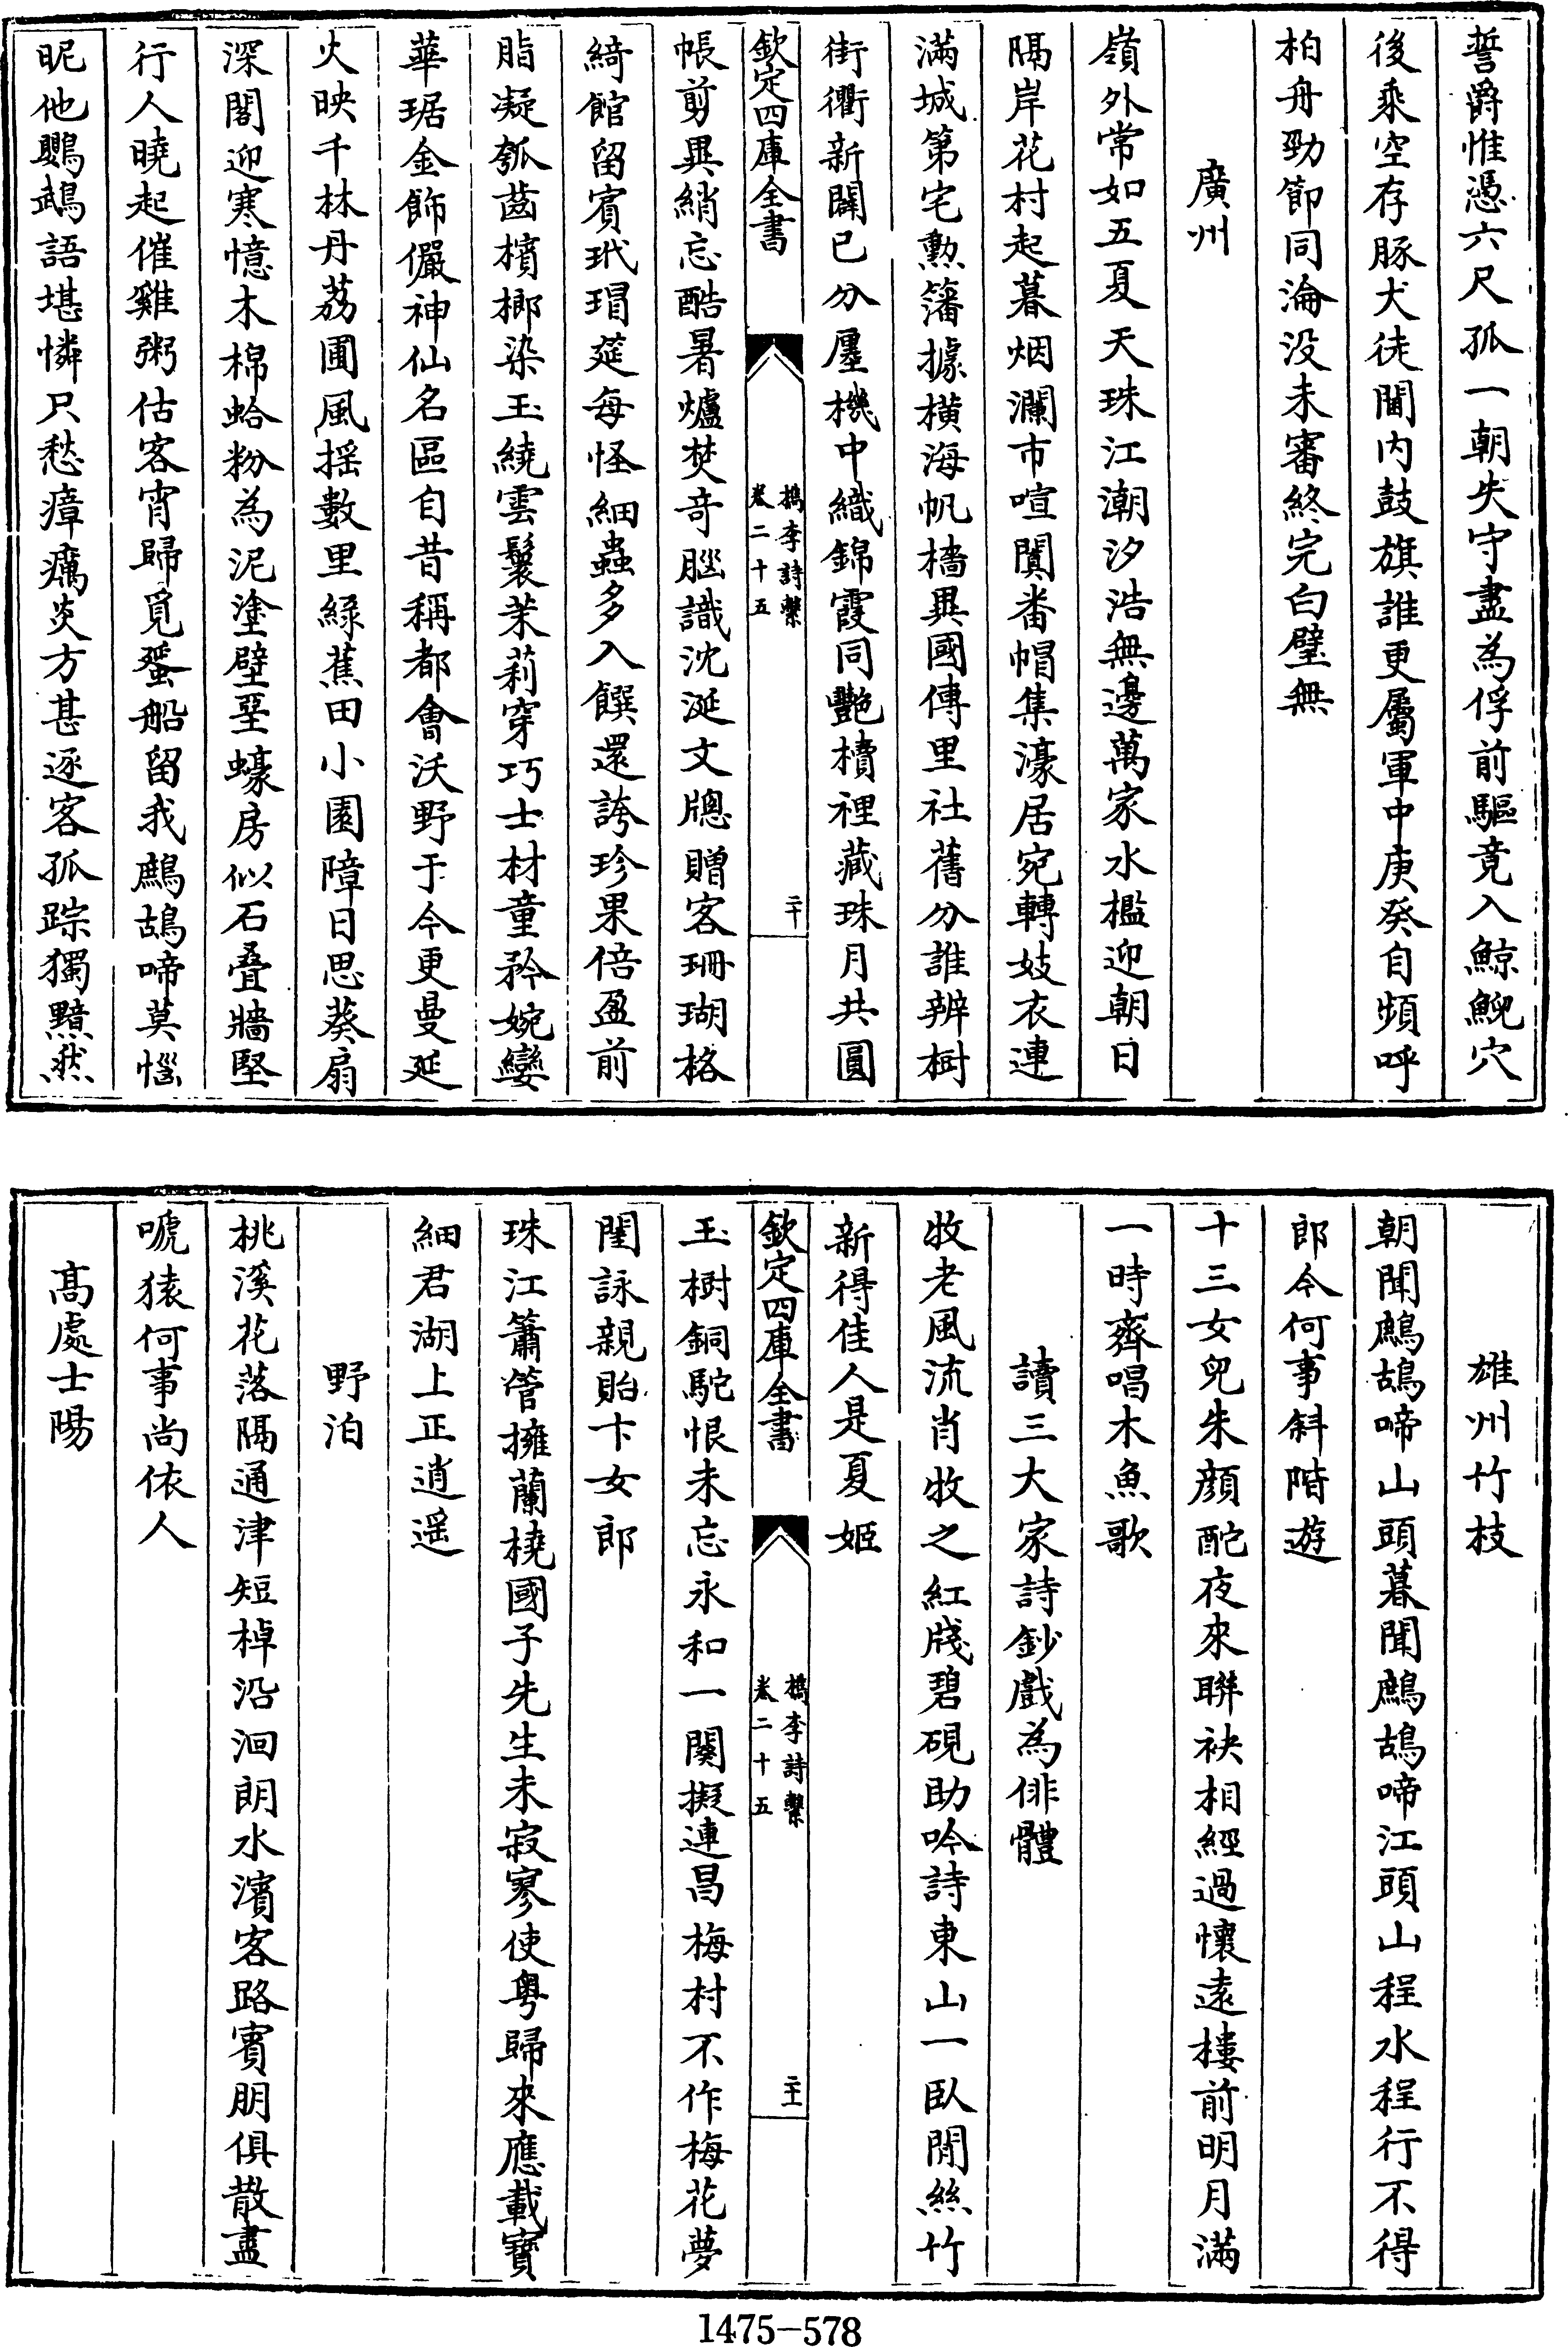 誓爵惟憑六尺孤一朝失守盡為俘前驅竟入鯨鯢穴
後乘空存豚犬徒閫内鼓旗誰更屬軍中庚癸自頻呼
柏舟勁節同淪没未審終完白璧無
廣州
嶺外常如五夏天珠江潮汐浩無邊萬家水檻迎朝日
隔岸花村起暮烟瀾市喧闐番帽集濠居宛轉妓衣連
滿城第宅勲籓據橫海帆檣異國傳里社舊分誰辨樹
街衢新闢已分廛機中織錦霞同艷櫝裡藏珠月共圓
欽定四庫全書
檇李詩繫
卷二十五
二十
帳剪異綃忘酷暑爐焚奇腦識沈涎文牕贈客珊瑚格
綺館留賓玳瑁筵每怪細蟲多入饌還誇珍果倍盈前
脂凝瓠齒檳榔染玉繞雲鬟茉莉穿巧士材童矜婉孌
華琚金飾儼神仙名區自昔稱都會沃野于今更曼延
火映千林丹荔圃風揺數里緑蕉田小園障日思葵扇
深閣迎寒憶木棉蛤粉為泥塗壁堊蠔房似石叠牆堅
行人曉起催雞粥估客宵歸覓蜑船留我鷓鴣啼莫惱
昵他鸚鵡語堪憐只愁瘴癘炎方甚逐客孤踪獨黯然
雄州竹枝
朝聞鷓鴣啼山頭暮聞鷓鴣啼江頭山程水程行不得
郎今何事斜階遊
十三女兒朱顔酡夜來聯袂相經過懷遠樓前明月滿
一時齊唱木魚歌
讀三大家詩鈔戲為俳體
牧老風流肖牧之紅牋碧硯助吟詩東山一臥閒絲竹
新得佳人是夏姬
欽定四庫全書
檇李詩繫
卷二十五
二十一
玉樹銅駝恨未忘永和一闋擬連昌梅村不作梅花夢
閨詠親貽卞女郎
珠江簫管擁蘭橈國子先生未寂寥使粤歸來應載寳
細君湖上正逍遥
野泊
桃溪花落隔通津短棹沿洄朗水濱客路賓朋俱散盡
嗁猿何事尚依人
高處士陽
1475-578